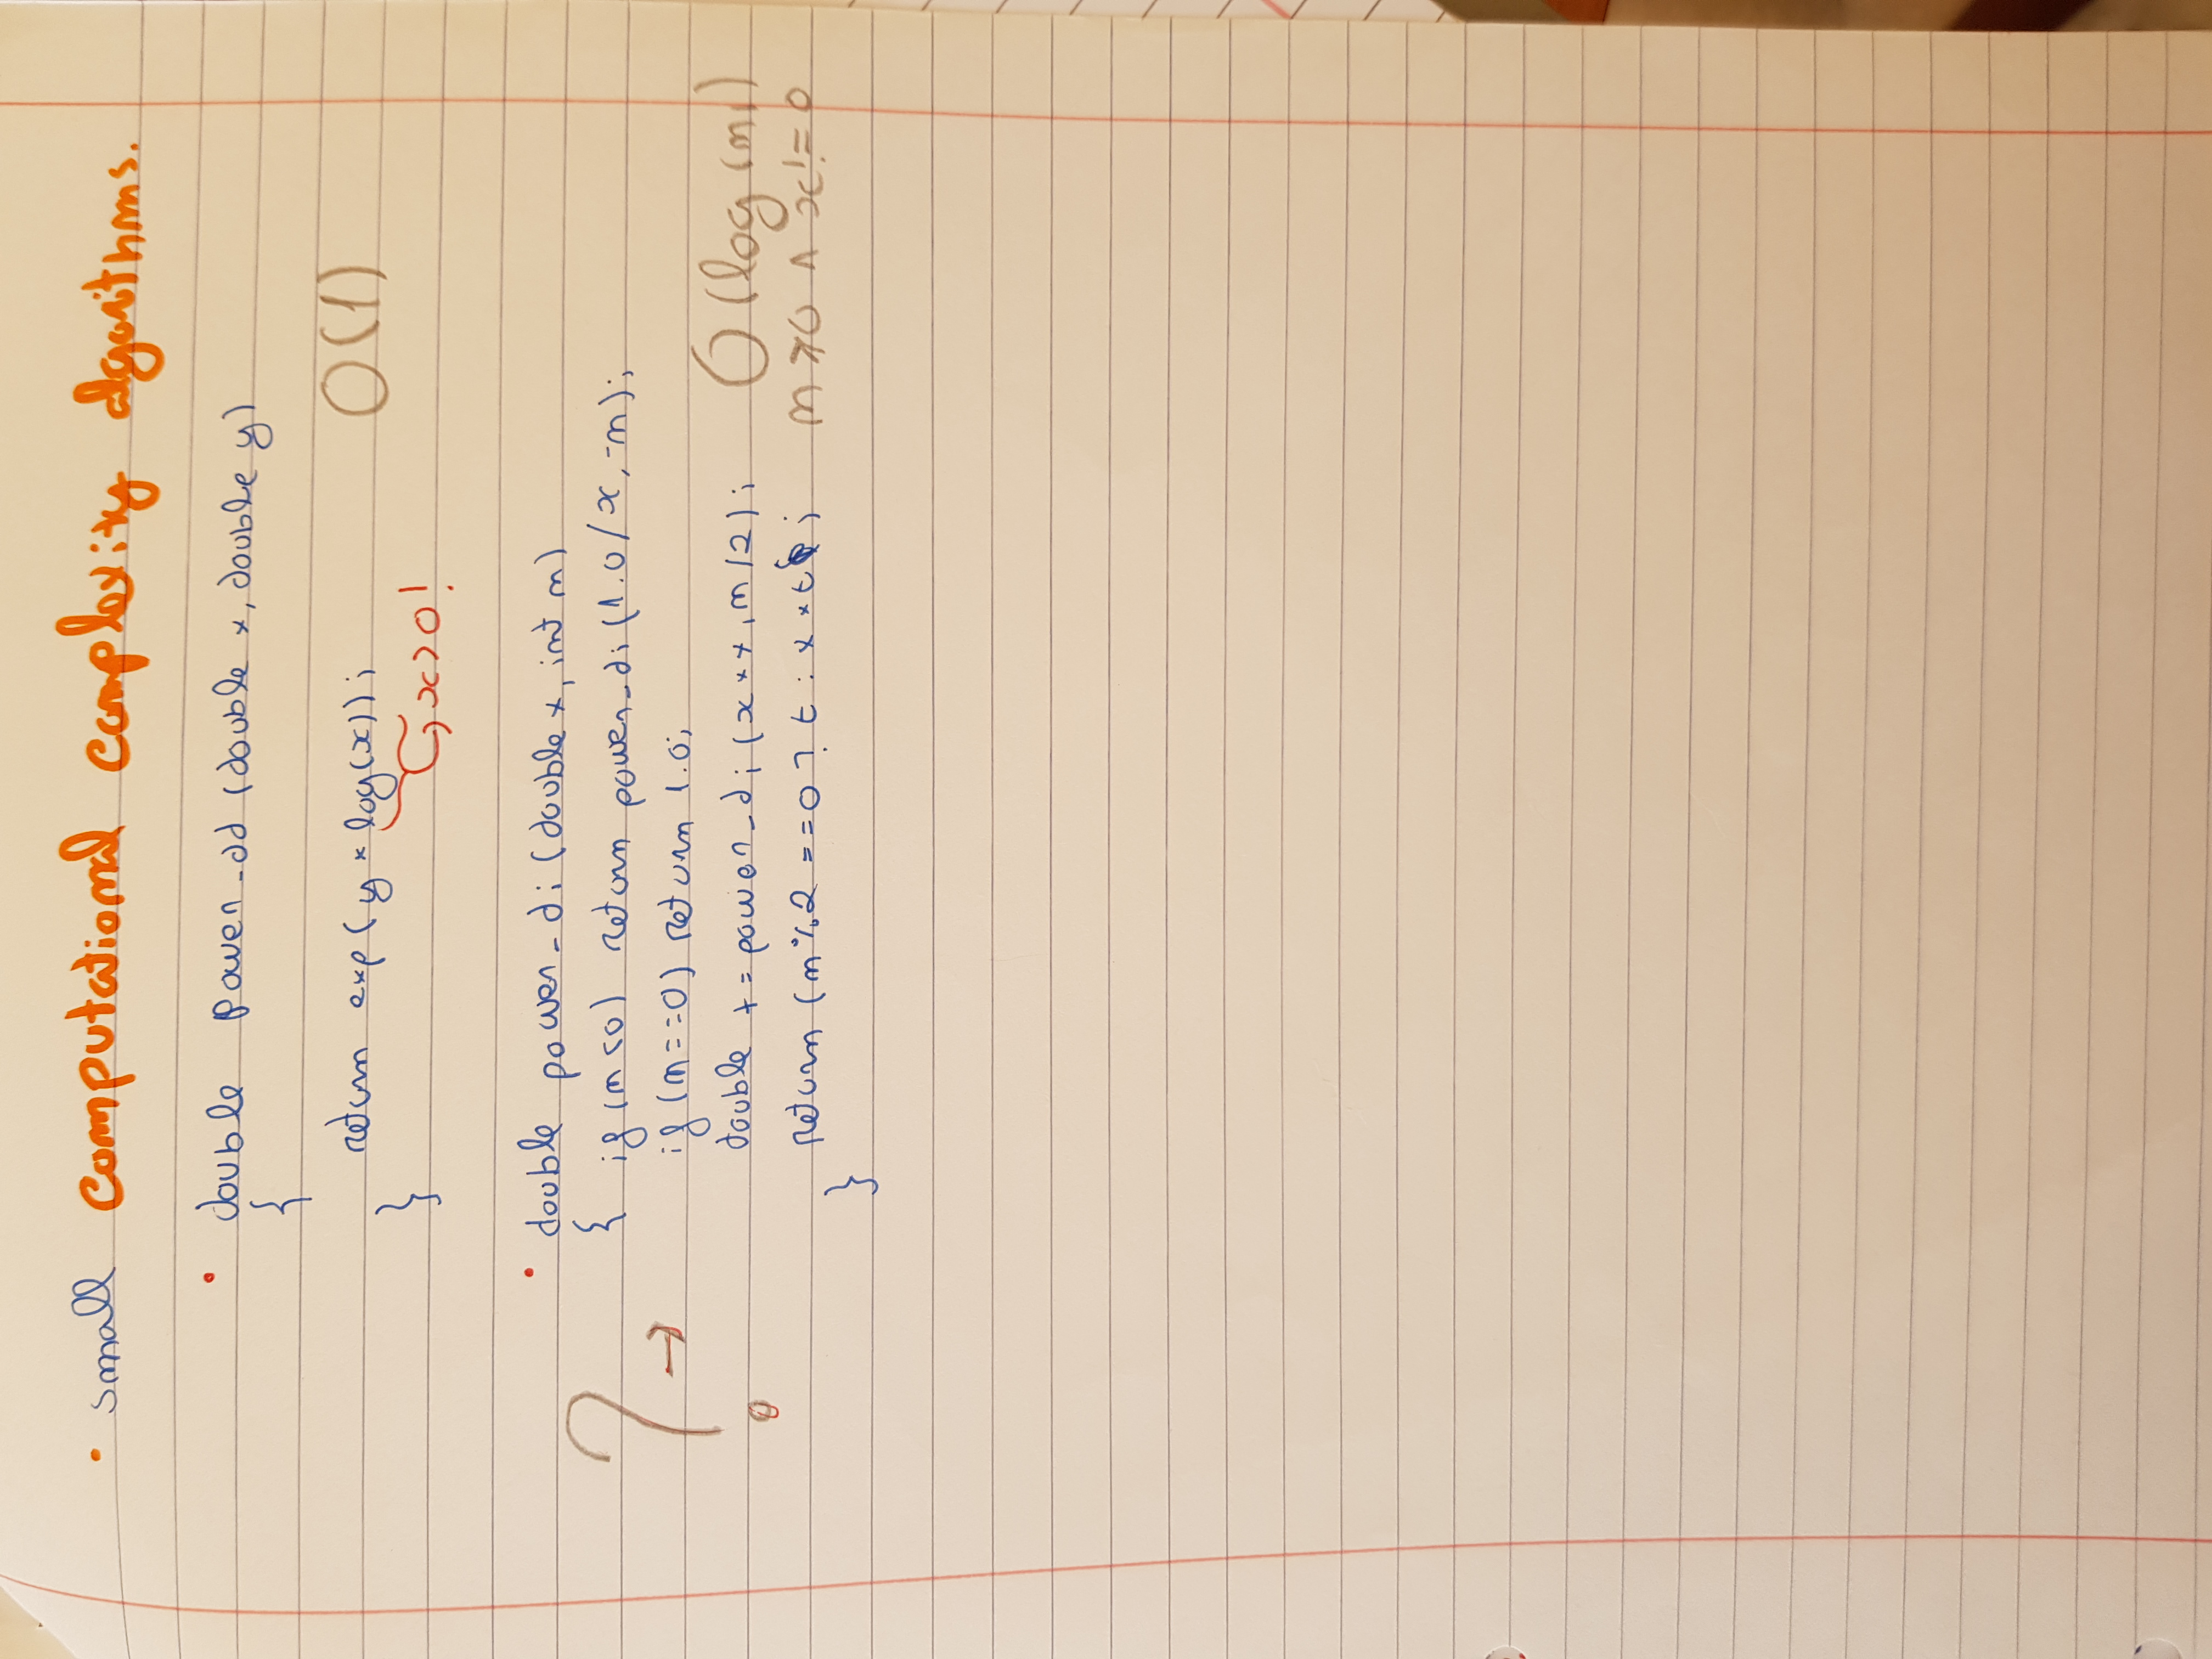 • small computational complexity algorithms.
• double power_dd (double x, double y)
{
return exp(y * log(x)); O(1)
} x>0!
• double power_di (double x, int m)
{ if (m<0) return power_di (1.0/x, -m);
? → if (m==0) return 1.0;
double t = power_di (x*x, m/2); O(log(m))
return (m%2 ==0 ? t : x*t; m≥0 ∧ x!=0
}